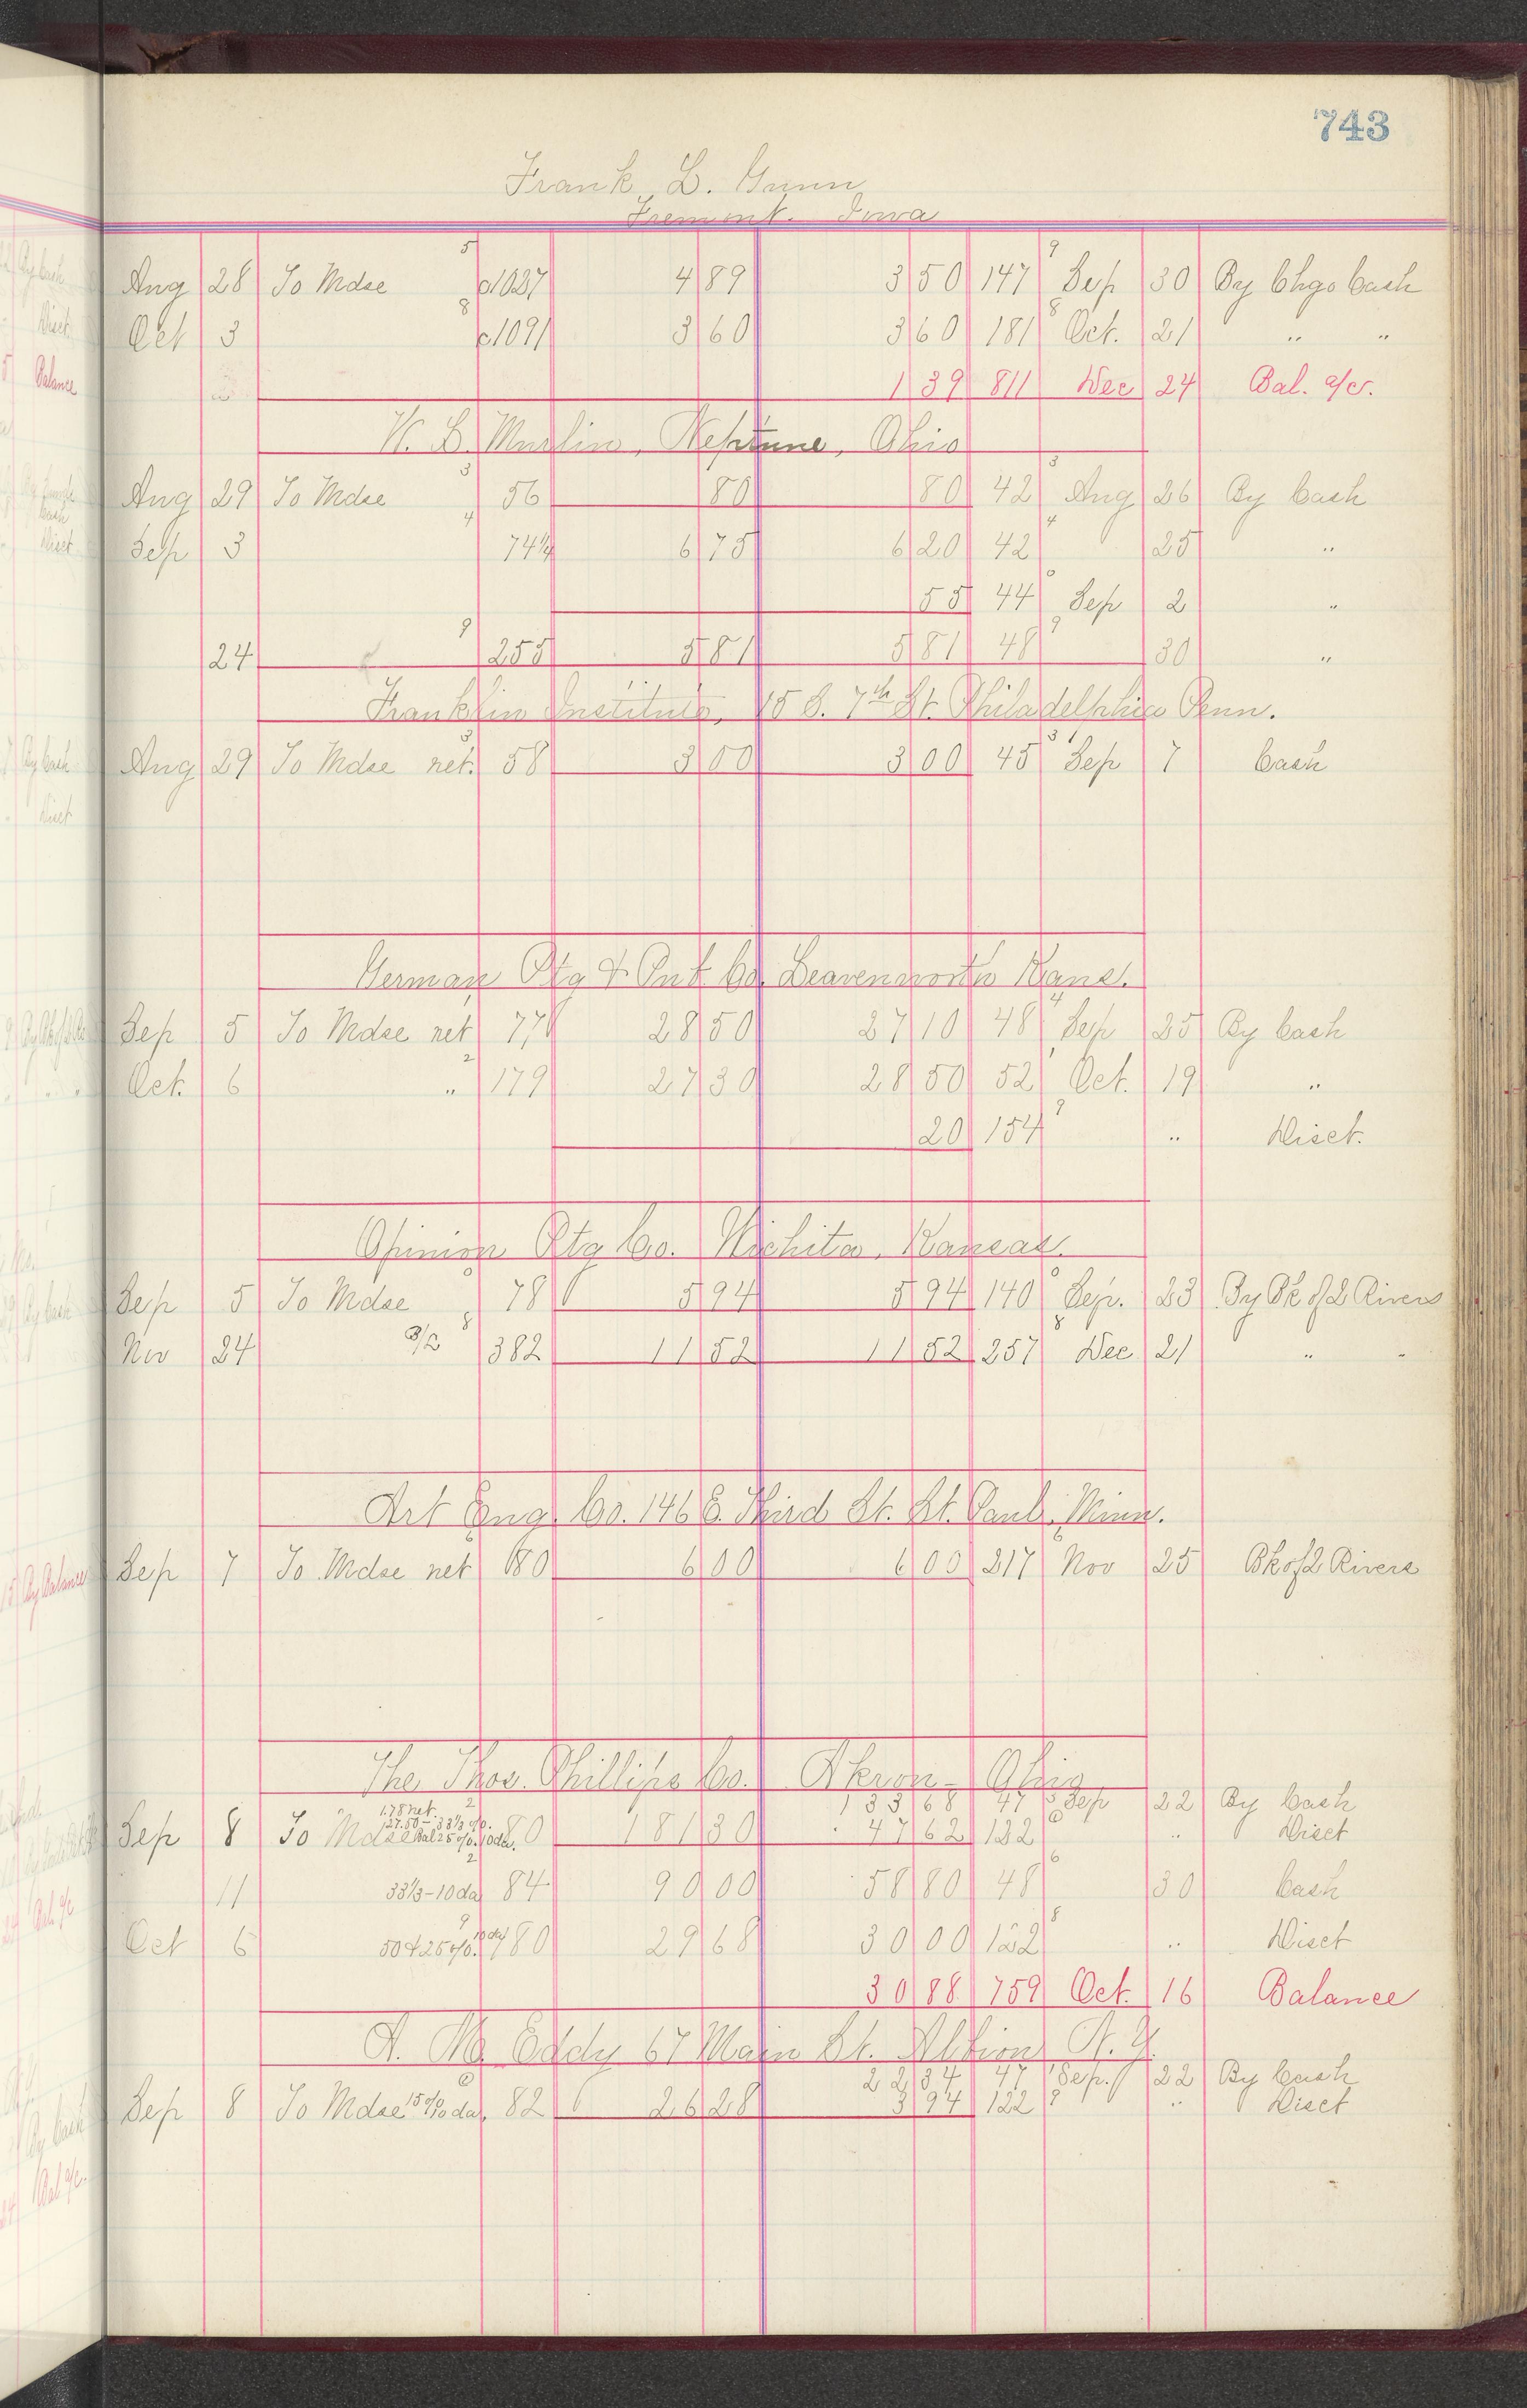 743
Frank L. Gunn
Fremont. Iowa
Aug 28 To Mdse 5 c1037 4 89 3 50 147 9 Sep 30 By Chgo Cash
Oct 3 8 c1091 3 60 3 60 181 8 Oct. 21 " "
1 39 811 Dec 24 Bal. a/c.
W. L. Murlin, Neptune, Ohio
Aug 29 To Mdse 3 56 80 80 42 3 Aug 26 By Cash
Sep 3 4 74¼ 6 75 6 20 42 4 25 "
55 44 0 Sep 2 "
24 9 255 5 81 5 81 48 9 30 "
Franklin Institute, 15 S. 7th St. Philadelphia Penn.
Aug 29 To Mdse net. 3 58 3 00 3 00 45 3 Sep 7 Cash
German Ptg & Pub Co. Leavenworth Kans.
Sep 5 To Mdse net 77 28 50 27 10 48 4 Sep 25 By Cash
Oct. 6 " 2 179 27 30 28 50 52 Oct. 19 "
20 154 9 " Disct.
Opinion Ptg Co. Wichita, Kansas.
Sep 5 To Mdse 0 78 5 94 5 94 140 0 Sep. 23 By Bk of 2 Rivers
Nov 24 8 382 11 52 11 52 257 8 Dec 21 " "
Art Eng. Co. 146 E. Third St. St. Paul, Minn.
Sep 7 To Mdse net 80 6 00 6 00 217 6 Nov 25 Bk of 2 Rivers
The Thos. Phillips Co. Akron - Ohio
1.78 net. 2 133 68 47 Sep 22 By Cash
27.50 - 33⅓ %.
Sep 8 To Mdse Bal 25 %. 10 da. 80 181 30 47 62 122 " Disct
11 33⅓ - 10 da 2 84 90 00 58 80 48 6 30 Cash
Oct 6 50 & 25 %. 10 da 9 180 29 68 30 00 122 8 " Disct
30 88 759 Oct. 16 Balance
A. M. Eddy 67 Main St. Albion N. Y.
22 34 47 Sep. 22 By Cash
Sep 8 To Mdse 15 % 10 da. 82 26 28 3 94 122 9 " Disct